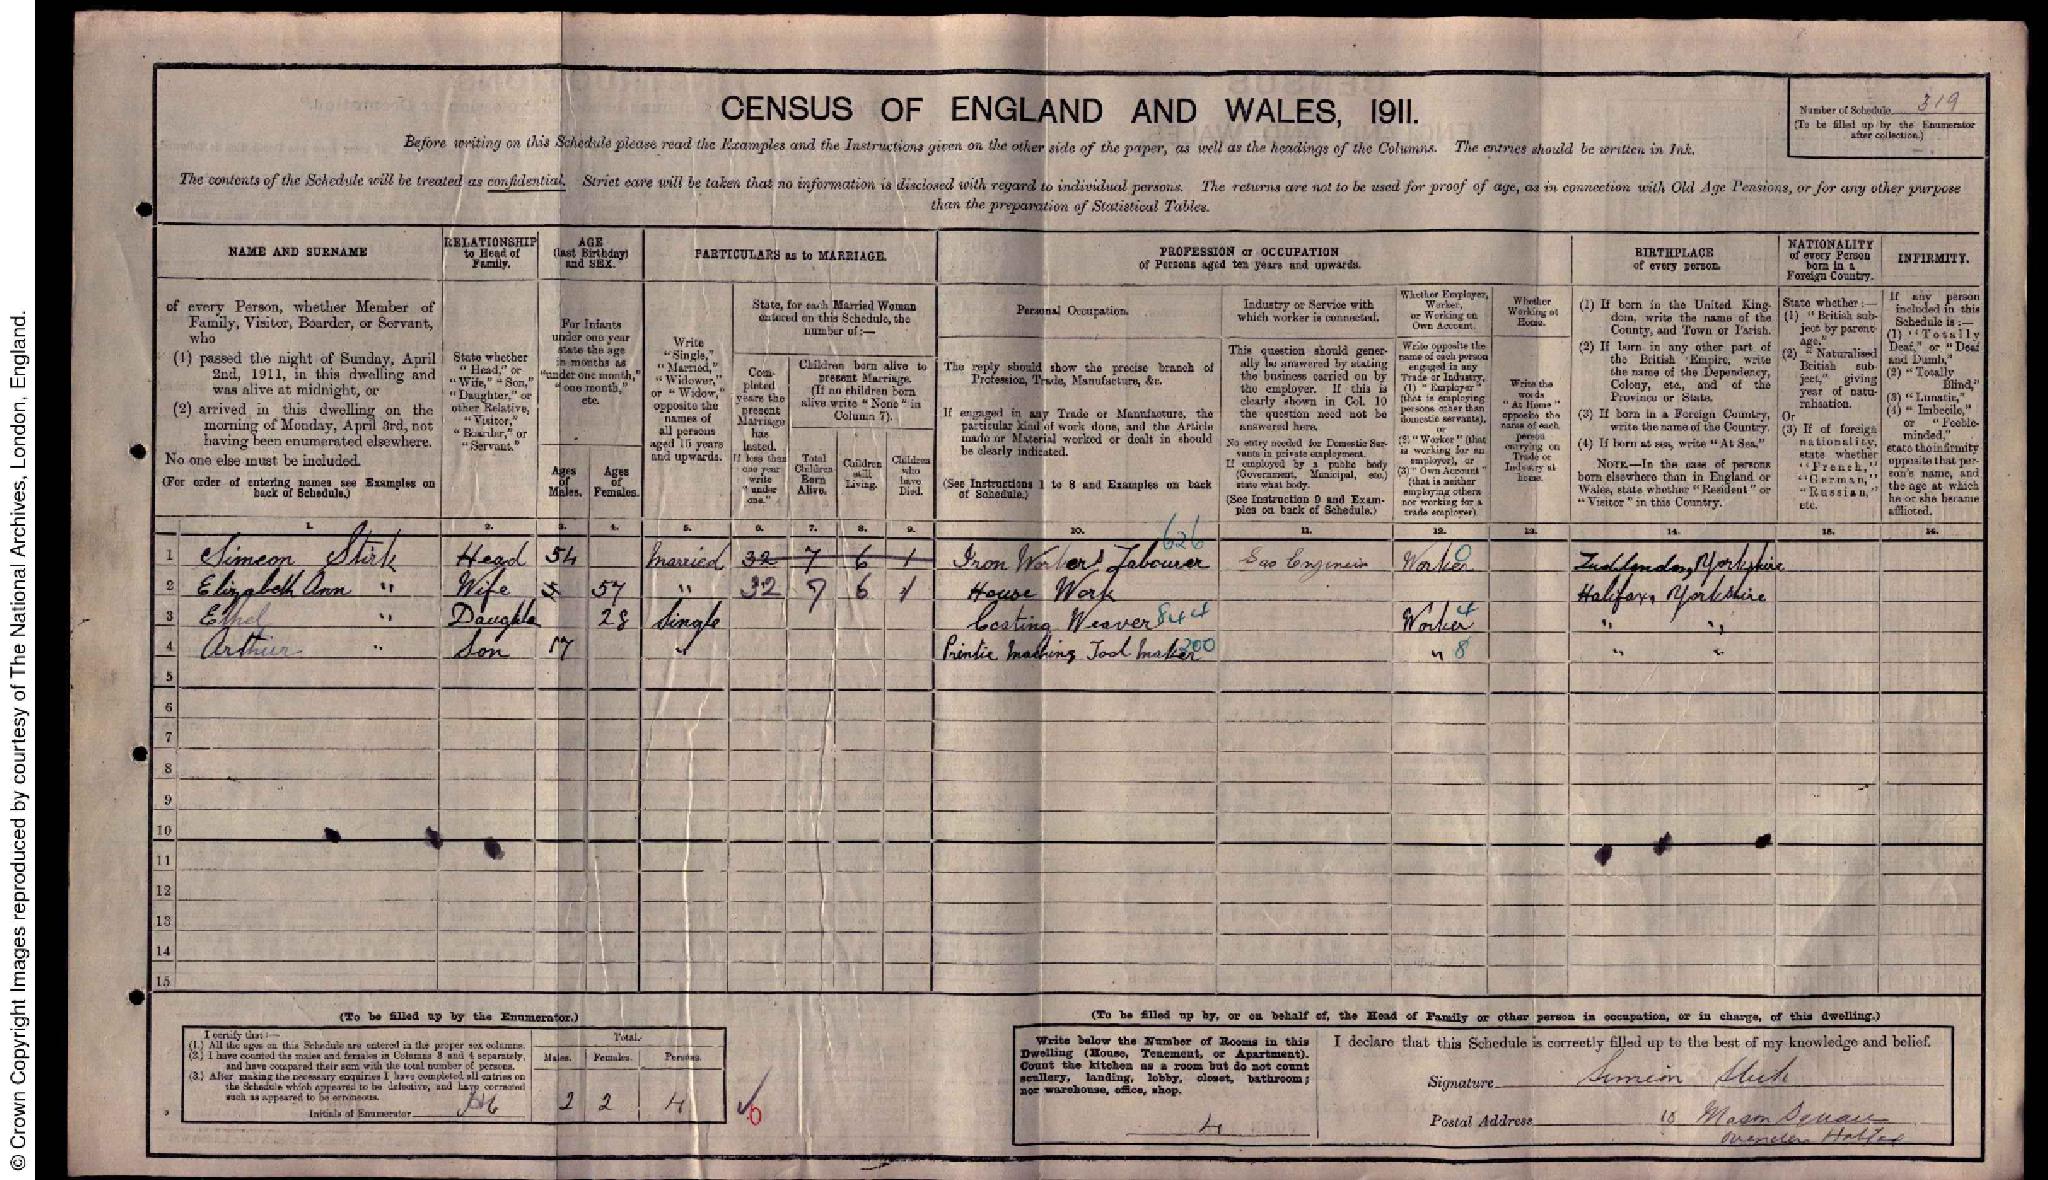 CENSUS OF ENGLAND AND WALES, 1911.
Number of Schedule 319
(To be filled up by the Enumerator
after collection.)
Before writing on this Schedule please read the Examples and the Instructions given on the other side of the paper, as well as the headings of the Columns. The entries should be written in Ink.
The contents of the Schedule will be treated as confidential. Strict care will be taken that no information is disclosed with regard to individual persons. The returns are not to be used for proof of age, as in connection with Old Age Pensions, or for any other purpose
than the preparation of Statistical Tables.
NAME AND SURNAME
of every Person, whether Member of
Family, Visitor, Boarder, or Servant,
who
(1) passed the night of Sunday, April
2nd, 1911, in this dwelling and
was alive at midnight, or
(2) arrived in this dwelling on the
morning of Monday, April 3rd, not
having been enumerated elsewhere.
No one else must be included.
(For order of entering names see Examples on
back of Schedule.)
RELATIONSHIP
to Head of
Family.
State whether
"Head," or
"Wife," "Son,"
"Daughter," or
other Relative,
"Visitor,"
"Boarder," or
"Servant."
AGE
(last Birthday)
and SEX.
For Infants
under one year
state the age
in months as
"under one month,"
"one month,"
etc.
Ages
of
Males.
Ages
of
Females.
PARTICULARS as to MARRIAGE.
Write
"Single,"
"Married,"
"Widower,"
or "Widow,"
opposite the
names of
all persons
aged 15 years
and upwards.
State, for each Married Woman
entered on this Schedule, the
number of:—
Completed
years the
present
Marriage
has
lasted.
If less than
one year
write
"under
one."
Children born alive to
present Marriage.
(If no children born
alive write "None" in
Column 7).
Total
Children
Born
Alive.
Children
still
Living.
Children
who
have
Died.
PROFESSION or OCCUPATION
of Persons aged ten years and upwards.
Personal Occupation.
The reply should show the precise branch of
Profession, Trade, Manufacture, &c.
If engaged in any Trade or Manufacture, the
particular kind of work done, and the Article
made or Material worked or dealt in should
be clearly indicated.
(See Instructions 1 to 8 and Examples on back
of Schedule.)
Industry or Service with
which worker is connected.
This question should generally
be answered by stating
the business carried on by
the employer. If this is
clearly shown in Col. 10
the question need not be
answered here.
No entry needed for Domestic Servants
in private employment.
If employed by a public body
(Government, Municipal, etc.)
state what body.
(See Instruction 9 and Examples
on back of Schedule.)
Whether Employer,
Worker,
or Working on
Own Account.
Write opposite the
name of each person
engaged in any
Trade or Industry,
(1) "Employer"
(that is employing
persons other than
domestic servants),
or
(2) "Worker" (that
is working for an
employer), or
(3) "Own Account"
(that is neither
employing others
nor working for a
trade employer).
Whether
Working at
Home.
Write the
words
"At Home"
opposite the
name of each
person
carrying on
Trade or
Industry at
home.
BIRTHPLACE
of every person.
(1) If born in the United Kingdom,
write the name of the
County, and Town or Parish.
(2) If born in any other part of
the British Empire, write
the name of the Dependency,
Colony, etc., and of the
Province or State.
(3) If born in a Foreign Country,
write the name of the Country.
(4) If born at sea, write "At Sea."
NOTE.—In the case of persons
born elsewhere than in England or
Wales, state whether "Resident" or
"Visitor" in this Country.
NATIONALITY
of every Person
born in a
Foreign Country.
State whether:—
(1) "British subject
by parentage,"
(2) "Naturalised
British subject,"
giving
year of naturalisation.
Or
(3) If of foreign
nationality,
state whether
"French,"
"German,"
"Russian,"
etc.
INFIRMITY.
If any person
included in this
Schedule is:—
(1) "Totally
Deaf," or "Deaf
and Dumb,"
(2) "Totally
Blind,"
(3) "Lunatic,"
(4) "Imbecile,"
or "Feeble-minded,"
state the infirmity
opposite that person's
name, and
the age at which
he or she became
afflicted.
1. 2. 3. 4. 5. 6. 7. 8. 9. 10. 11. 12. 13. 14. 15. 16.
626
1 Simeon Stirk Head 54 Married 32 7 6 1 Iron Worker Labourer Gas Engineer Worker 0 Yorkshire
2 Elizabeth Ann " Wife 57 " 32 7 6 1 House Work Halifax, Yorkshire
3 Ethel " Daughter 28 Single Weaver 844 Worker 4 " "
4 Arthur " Son 17 " Tool Maker 300 " 8 " "
5
6
7
8
9
10
11
12
13
14
15
(To be filled up by the Enumerator.)
I certify that:—
(1.) All the ages on this Schedule are entered in the proper sex columns.
(2.) I have counted the males and females in Columns 3 and 4 separately,
and have compared their sum with the total number of persons.
(3.) After making the necessary enquiries I have completed all entries on
the Schedule which appeared to be defective, and have corrected
such as appeared to be erroneous.
Initials of Enumerator
Total.
Males. Females. Persons.
2 2 4
(To be filled up by, or on behalf of, the Head of Family or other person in occupation, or in charge, of this dwelling.)
Write below the Number of Rooms in this
Dwelling (House, Tenement, or Apartment).
Count the kitchen as a room but do not count
scullery, landing, lobby, closet, bathroom;
nor warehouse, office, shop.
4
I declare that this Schedule is correctly filled up to the best of my knowledge and belief.
Signature Simeon Stirk
Postal Address Mason Square
Ovenden Halifax
© Crown Copyright Images reproduced by courtesy of The National Archives, London, England.